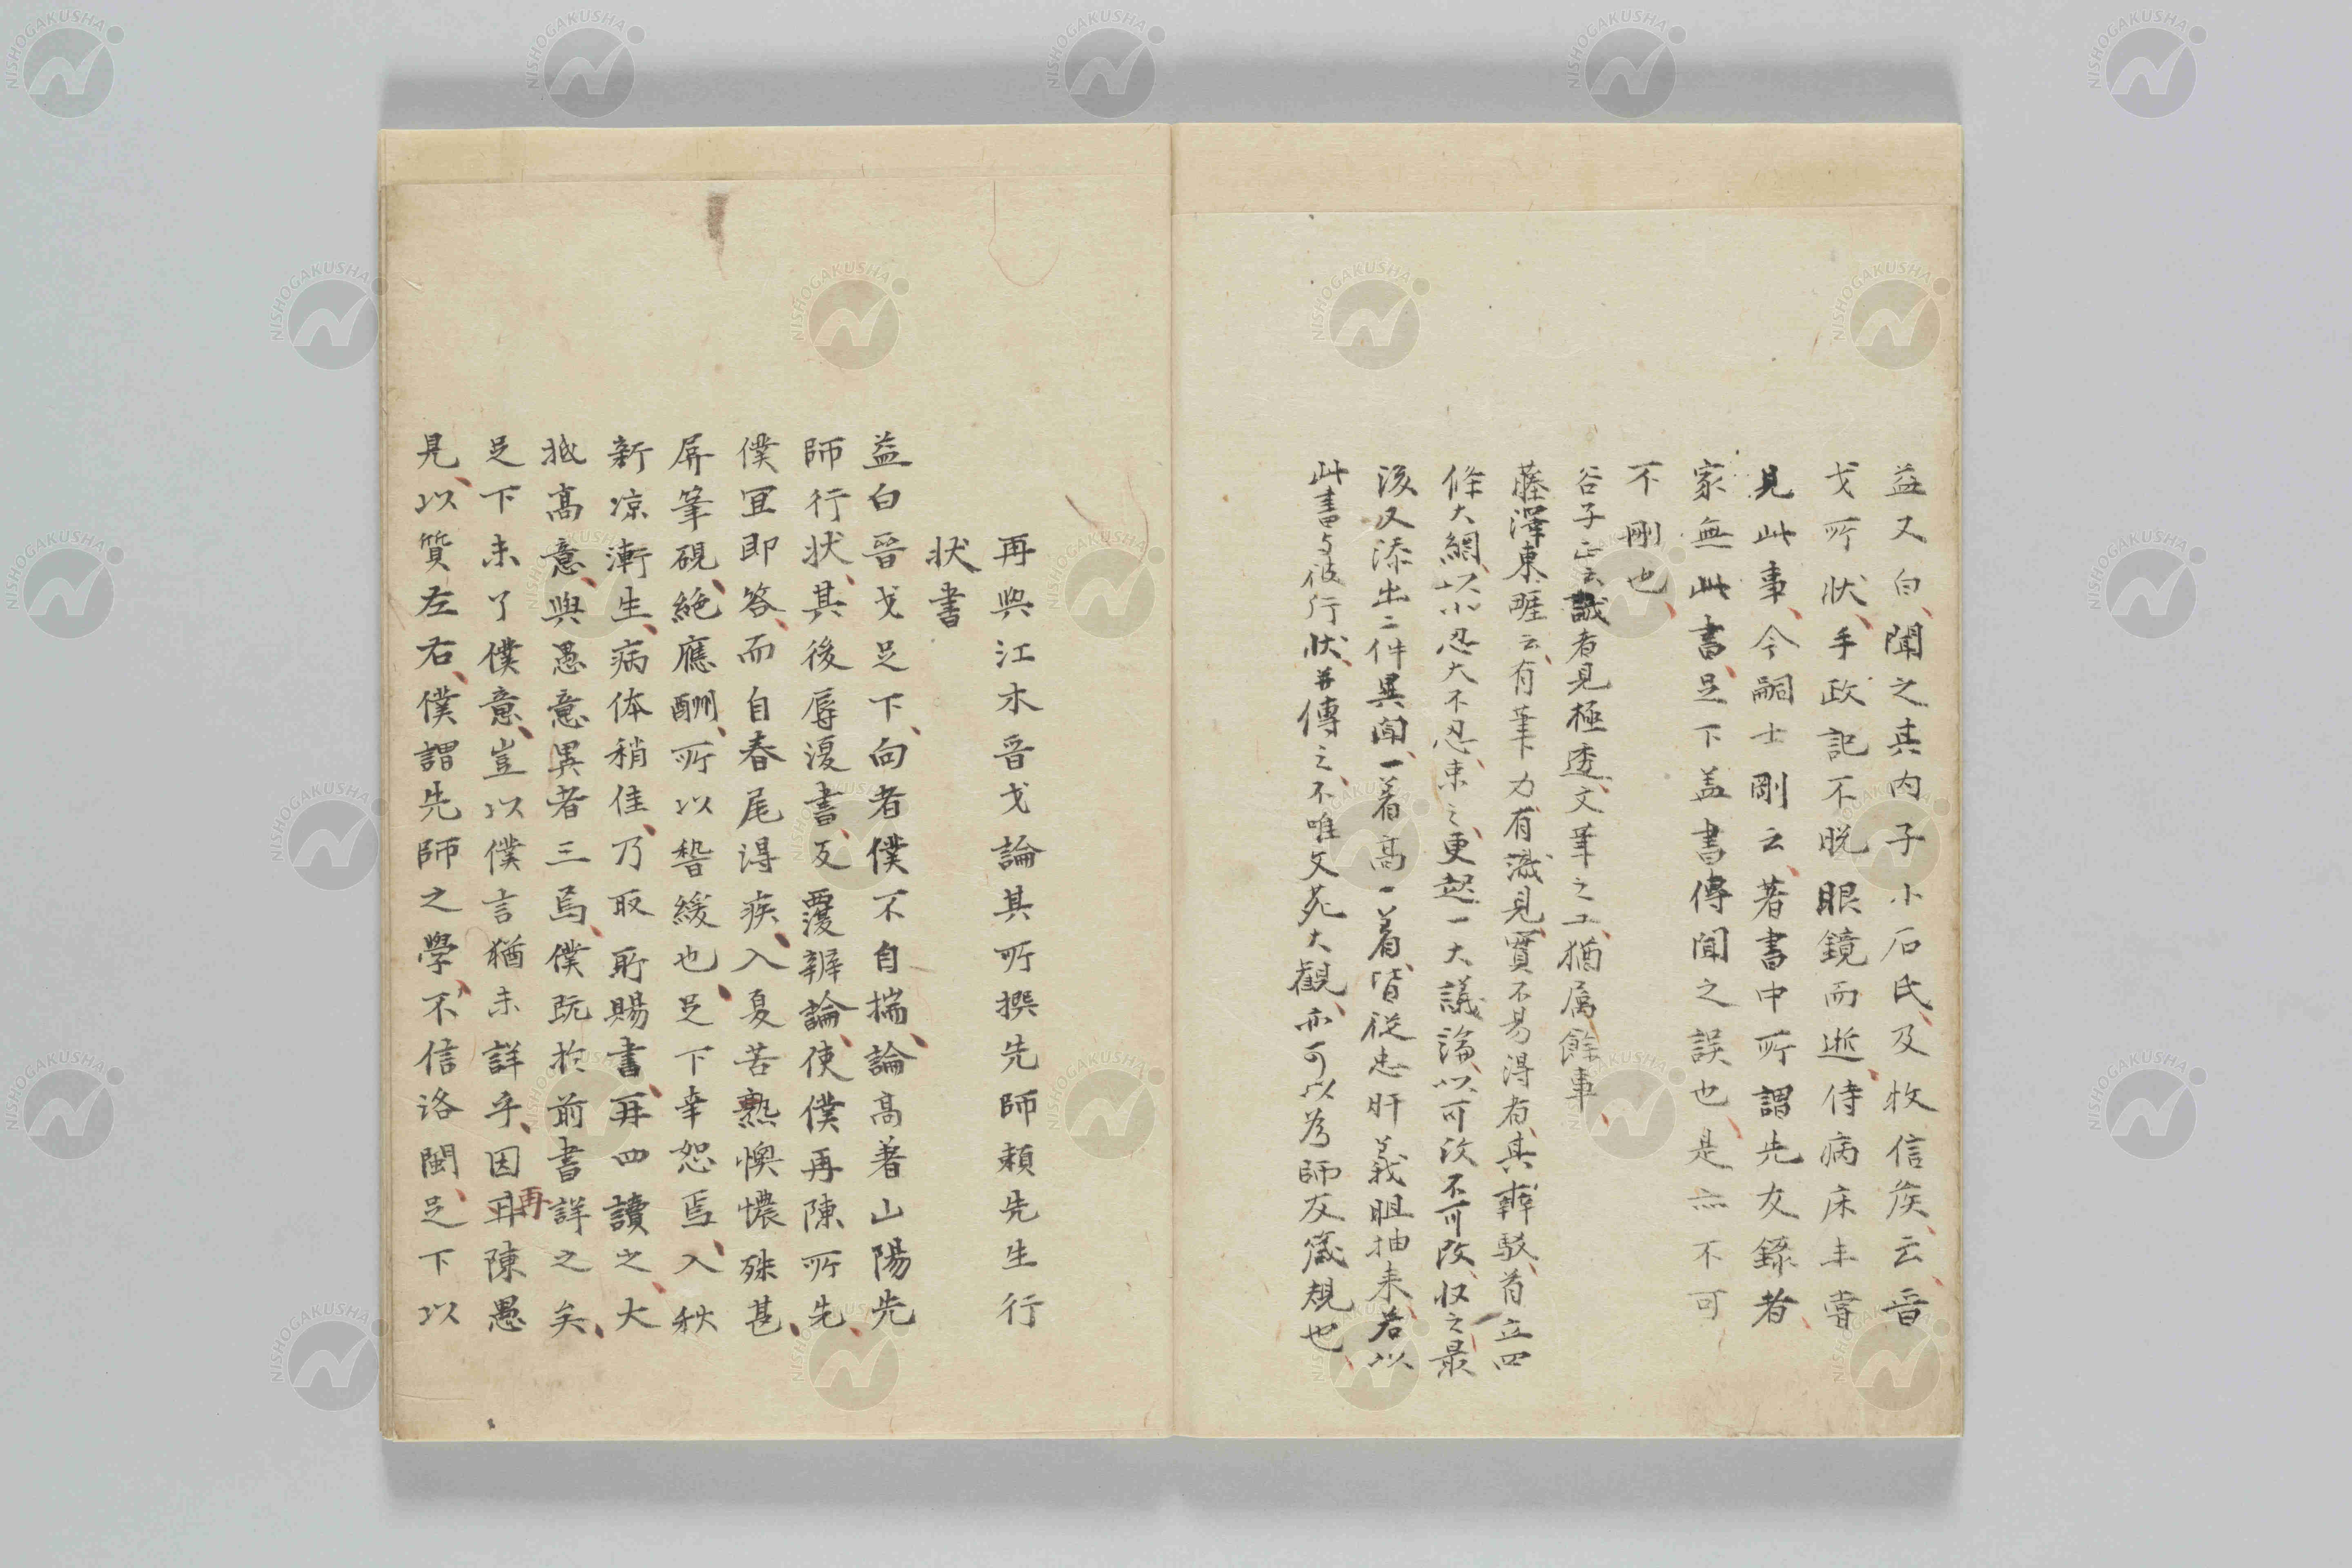 益又白、聞之其内子小石氏、及牧信侯、云、晉
戈所状、手政記不脱眼鏡而逝、侍病床未嘗
見此事、今嗣士剛云、著書中所謂先友録者、
家無此書、足下盖書傳聞之誤也、是亦不可
不刪也、
谷子正云識者見極透、文筆之工、猶属餘事、
藤澤東畡云、有筆力有識見、實不易得者、其辨駁、首立四
條大綱、以小忍大不忍束之、更起一大議論、以可改不可改、収之、最
後又添出二件異聞、一著高一著、皆從忠肝義胆抽来、若以
此書与彼行状、并傳之、不唯文苑大觀、亦可以为師友箴規也、
再與江木晉戈論其所撰先師頼先生行
状書
益白晉戈足下、向者僕不自揣、論高著山陽先
師行状、其後辱復書、反覆辨論、使僕再陳所先、
僕冝即答、而自春尾得疾、入夏苦熱懊憹殊甚、
屏筆硯、絶應酬、所以暫緩也、足下幸恕焉、入秋
新凉漸生、病体稍佳、乃取所賜書、再四讀之、大
抵高意、與愚意異者三焉、僕既於前書詳之矣、
足下未了僕意、豈以僕言猶未詳乎、因再陳愚
見、以質左右、僕謂先師之學、不信洛閩、足下以
再
NISHOGAKUSHA